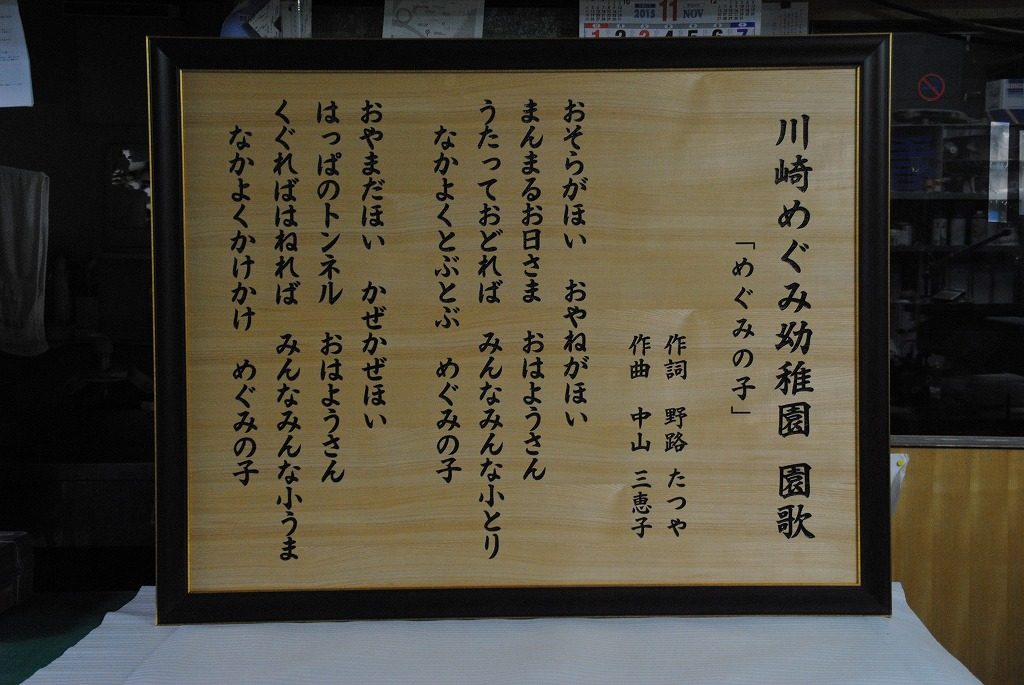 川崎めぐみ幼稚園 園歌
「めぐみの子」
作詞 野路 たつや
作曲 中山 三恵子
おそらがほい おやねがほい
まんまるお日さま おはようさん
うたっておどれば みんなみんな小とり
なかよくとぶとぶ めぐみの子
おやまだほい かぜかぜほい
はっぱのトンネル おはようさん
くぐればはねれば みんなみんな小うま
なかよくかけかけ めぐみの子
2015 11 NOV
1 2 3 4 5 6 7